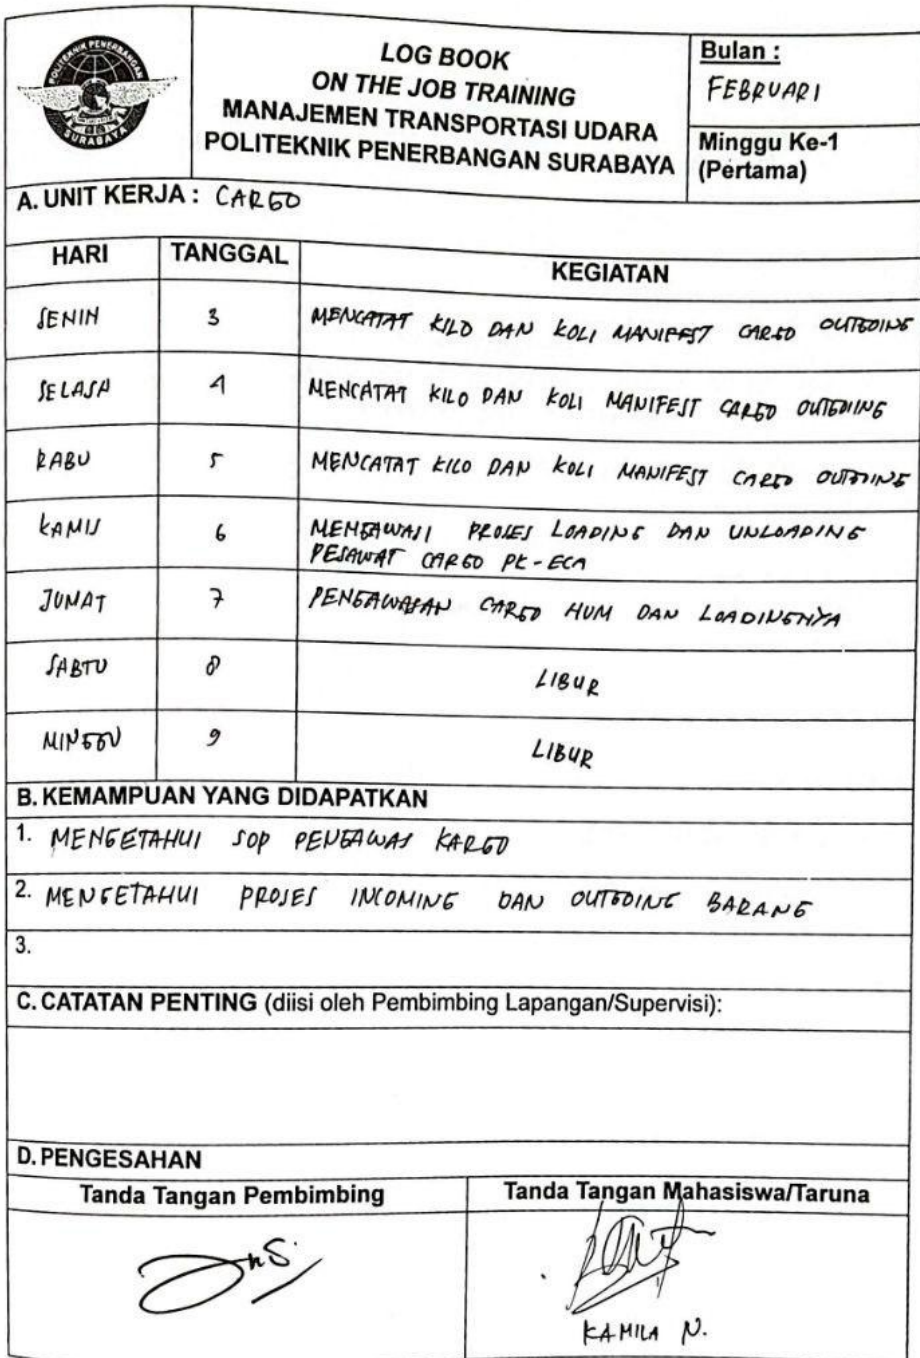 POLITEKNIK PENERBANGAN
SURABAYA
LOG BOOK
ON THE JOB TRAINING
MANAJEMEN TRANSPORTASI UDARA
POLITEKNIK PENERBANGAN SURABAYA
Bulan :
FEBRUARI
Minggu Ke-1
(Pertama)
A. UNIT KERJA : CARGO
HARI TANGGAL KEGIATAN
SENIN 3 MENCATAT KILO DAN KOLI MANIFEST CARGO OUTGOING
SELASA 4 MENCATAT KILO DAN KOLI MANIFEST CARGO OUTGOING
RABU 5 MENCATAT KILO DAN KOLI MANIFEST CARGO OUTGOING
KAMIS 6 MENGAWASI PROSES LOADING DAN UNLOADING
PESAWAT CARGO PK-ECA
JUMAT 7 PENGAWASAN CARGO HUM DAN LOADINGNYA
SABTU 8 LIBUR
MINGGU 9 LIBUR
B. KEMAMPUAN YANG DIDAPATKAN
1. MENGETAHUI SOP PENGAWAS KARGO
2. MENGETAHUI PROSES INCOMING DAN OUTGOING BARANG
3.
C. CATATAN PENTING (diisi oleh Pembimbing Lapangan/Supervisi):
D. PENGESAHAN
Tanda Tangan Pembimbing Tanda Tangan Mahasiswa/Taruna
KAMILA N.